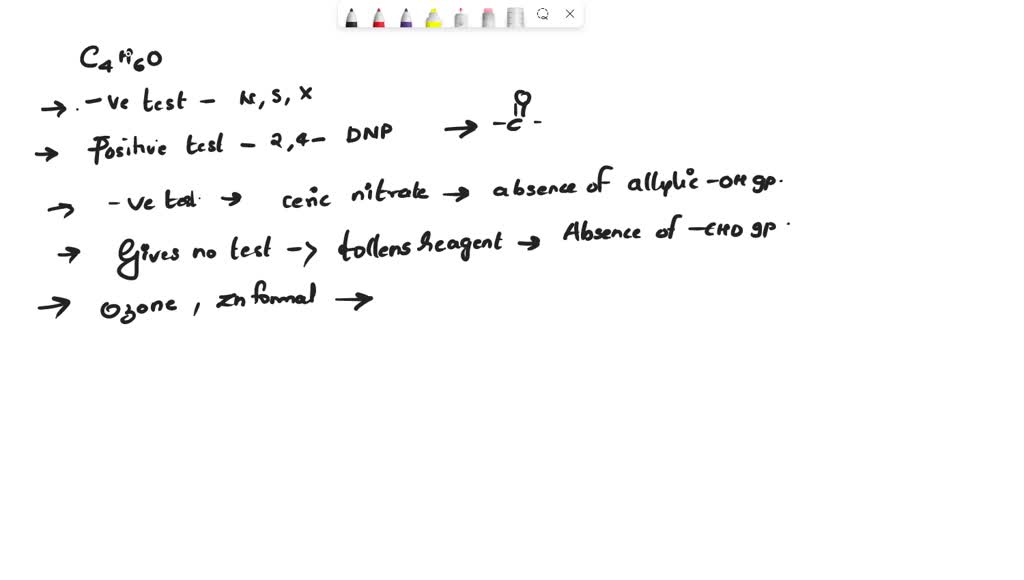 C4H6O
→ -ve test - N, S, X
→ Positive test - 2,4- DNP → -C- O
→ -ve test → ceric nitrate → absence of allylic -OH gp.
→ Gives no test -> tollens reagent → Absence of -CHO gp.
→ Ozone, Zn formal →